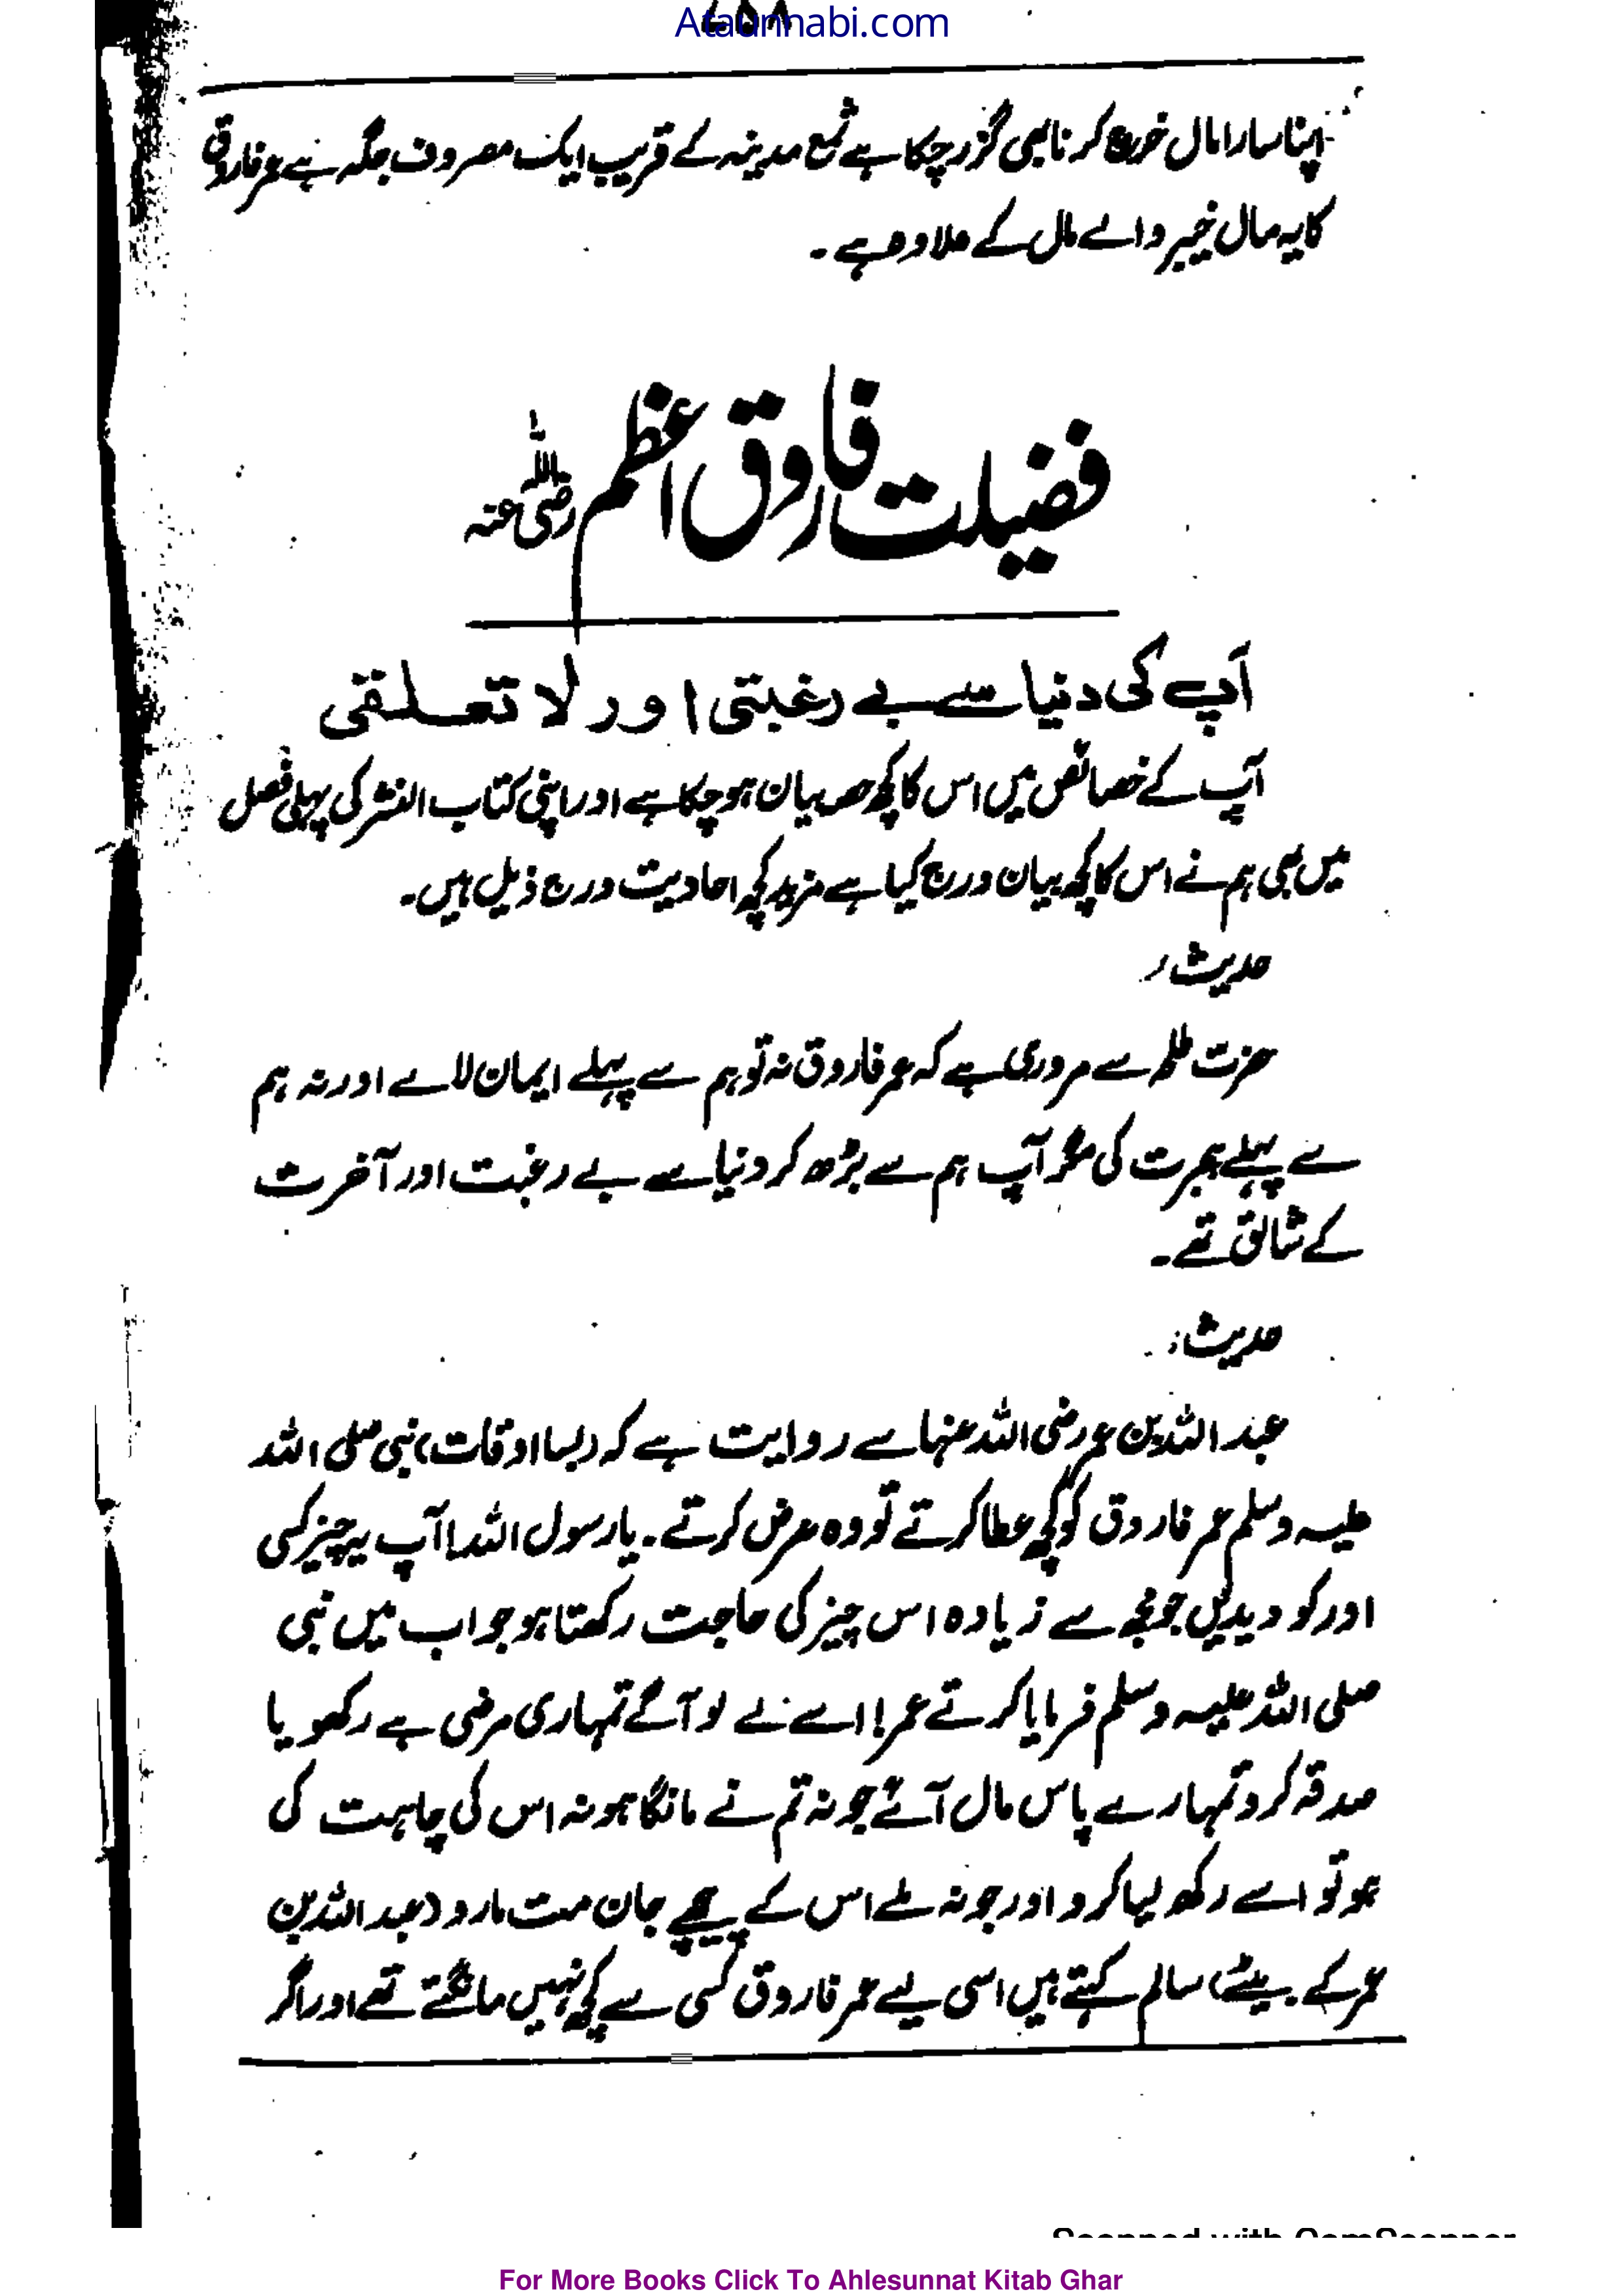 Ataunnabi.com
۷۵۸
اپنا سارا مال خرچ کرنا بھی گزر چکا ہے ثمغ مدینہ کے قریب ایک معروف جگہ ہے عمر فاروق
کا یہ مال خیبر والے مال کے علاوہ ہے۔
فضیلت فاروق اعظم رضی اللہ عنہ
آپ کی دنیا سے بے رغبتی اور لا تعلقی
آپ کے خصائص میں اس کا کچھ حصہ بیان ہو چکا ہے اور اپنی کتاب النشر کی پہلی فصل
میں بھی ہم نے اس کا کچھ بیان درج کیا ہے مزید کچھ احادیث درج ذیل ہیں۔
حدیث:
حضرت طلحہ سے مروی ہے کہ عمر فاروق نہ تو ہم سے پہلے ایمان لائے اور نہ ہم
سے پہلے ہجرت کی مگر آپ ہم سے بڑھ کر دنیا سے بے رغبت اور آخرت
کے شائق تھے۔
حدیث:
عبد اللہ بن عمر رضی اللہ عنہا سے روایت ہے کہ (بسا اوقات) نبی صلی اللہ
علیہ وسلم عمر فاروق کو کچھ عطا کرتے تو وہ عرض کرتے۔ یا رسول اللہ! آپ یہ چیز کسی
اور کو دیدیں جو مجھ سے زیادہ اس چیز کی حاجت رکھتا ہو جواب میں نبی
صلی اللہ علیہ وسلم فرمایا کرتے عمر! اسے لے لو آگے تمہاری مرضی ہے رکھو یا
صدقہ کرو تمہارے پاس مال آئے جو نہ تم نے مانگا ہو نہ اس کی چاہت کی
ہو تو اسے رکھ لیا کرو اور جو نہ ملے اس کے پیچھے جان مت مارو (عبد اللہ بن
عمر کے بیٹے) سالم کہتے ہیں اسی لیے عمر فاروق کسی سے کچھ نہیں مانگتے تھے اور اگر
Scanned with CamScanner
For More Books Click To Ahlesunnat Kitab Ghar